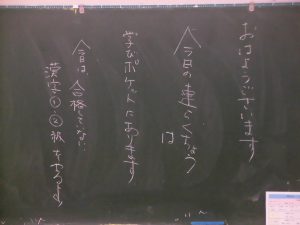 おはようございます
今日の連らくちょうは
学びポケットにあります
今日は、合格してない
漢字①②級をやるます